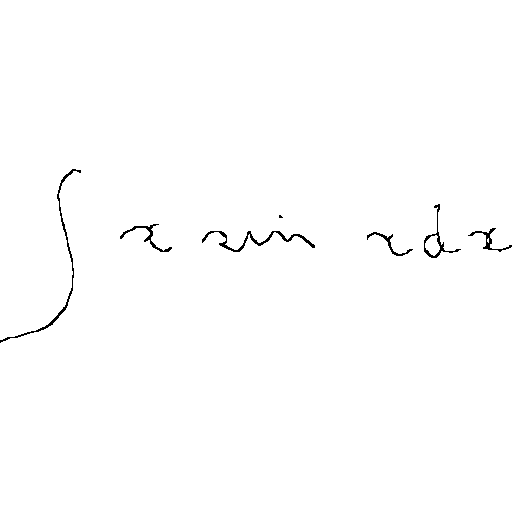 ∫ x sin x dx